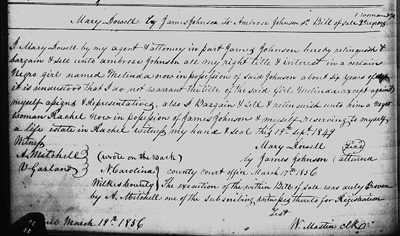 Mary Lowell by James Johnson To Ambrose Johnson Sr Bill of Sale 1 woman & 2 Negroes
I Mary Lowell by my agent & attorney in part James Johnson hereby relinquish &
bargain & sell unto Ambrose Johnson all my right title & interest in a certain
Negro girl named Melinda now in possession of said Johnson about six years of age
it is understood that I do not warrant the title of the said Girl Melinda except against
myself assigns & Representatives, also I Bargain & Sell & relinquish unto him a Negro
woman Rachel now in possession of James Johnson & myself reserving to myself
a life estate in Rachel witness my hand & seal this 19th Sept 1849
Witness Mary Lowell (Seal)
A. Mitchell (wrote on the back) by James Johnson attorney
W Garland N Carolina county court office March 19th 1856
Wilkes County The execution of the within Bill of Sale was duly proven
by A. Mitchell one of the subscribing witnesses thereto for Registration
Test
March 19th 1856 W. Mastin clk